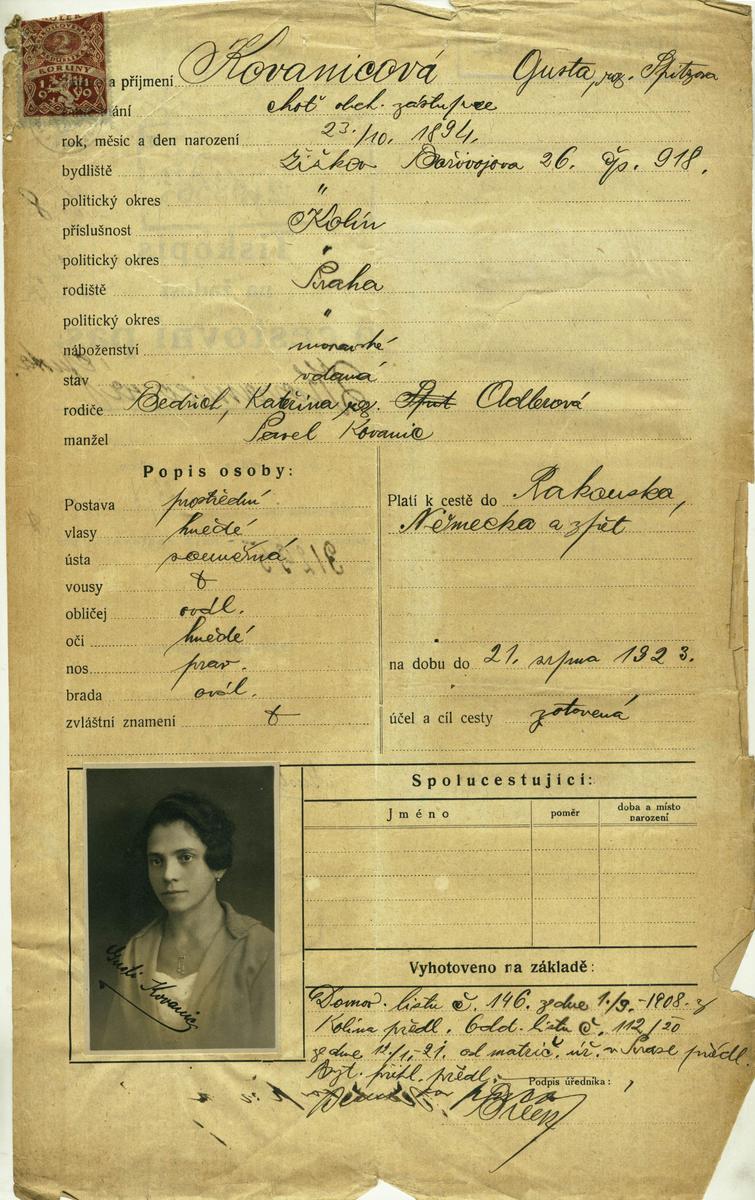 2
KORUNY
a příjmení Kovanicová Gusta, roz. Spitzova
choť obch. zástupce
rok, měsíc a den narození 23./10. 1894.
bydliště Žižkov Bořivojova 26. čp. 918.
politický okres "
příslušnost Kolín
politický okres "
rodiště Praha
politický okres "
náboženství
stav vdaná
rodiče Bedřich, Kateřina, roz. Adlerová
manžel Pavel Kovanic
Popis osoby:
Postava prostřední
vlasy hnědé
ústa souměrná
vousy
obličej ovál.
oči hnědé
nos prav.
brada ovál.
zvláštní znamení
Platí k cestě do Rakouska,
Německa a zpět
na dobu do 21. srpna 1923.
účel a cíl cesty
Gusti Kovanic
Spolucestující:
Jméno
poměr
doba a místo
narození
Vyhotoveno na základě:
Domov. listu č. 146. ze dne 1./9.-1908. z
Kolína předl. Odd. listu č. 112/20
ze dne 12/1.-21. od matrič. úř. v Praze předl.
přihl. předl.
Podpis úředníka: